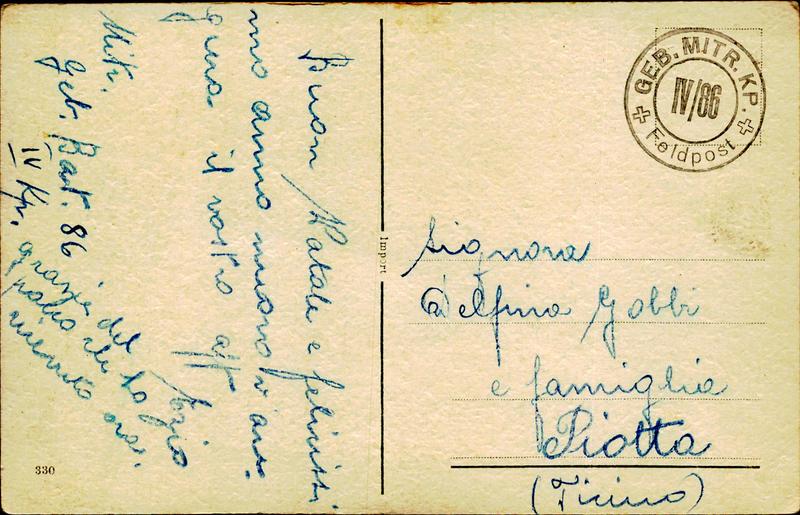 Buon Natale e felicissi
mo anno nuovo v'au
gura il vostro aff
Mitr.
Geb. Bat. 86
IV Kp.
grazie del
ricevuto ora.
Import
330
GEB. MITR. KP.
IV/86
Feldpost
Signora
Delfina Gobbi
e famiglia
Piotta
(Ticino)